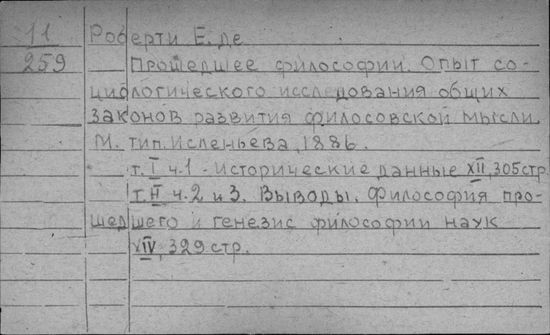 11 Роберти Е. де
259 Прошедшее философии. Опыт со-
циологического исследования общих
законов развития филосовской мысли.
М. тип. Исленьева, 1886.
т. I ч.1 - Исторические данные XII, 305 стр
т. II ч. 2 и 3. Выводы. Философия про-
шедшего и генезис философии наук
XIV, 329 стр.